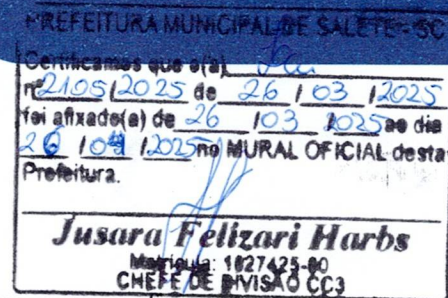 PREFEITURA MUNICIPAL DE SALETE - SC
Certificamos que o(a) Lei
nº 2105/2025 de 26/03/2025
foi afixado(a) de 26/03/2025 ao dia
26/04/2025 no MURAL OFICIAL desta
Prefeitura.
Jusara Felizari Harbs
Matrícula: 1827425-00
CHEFE DE DIVISÃO CC3